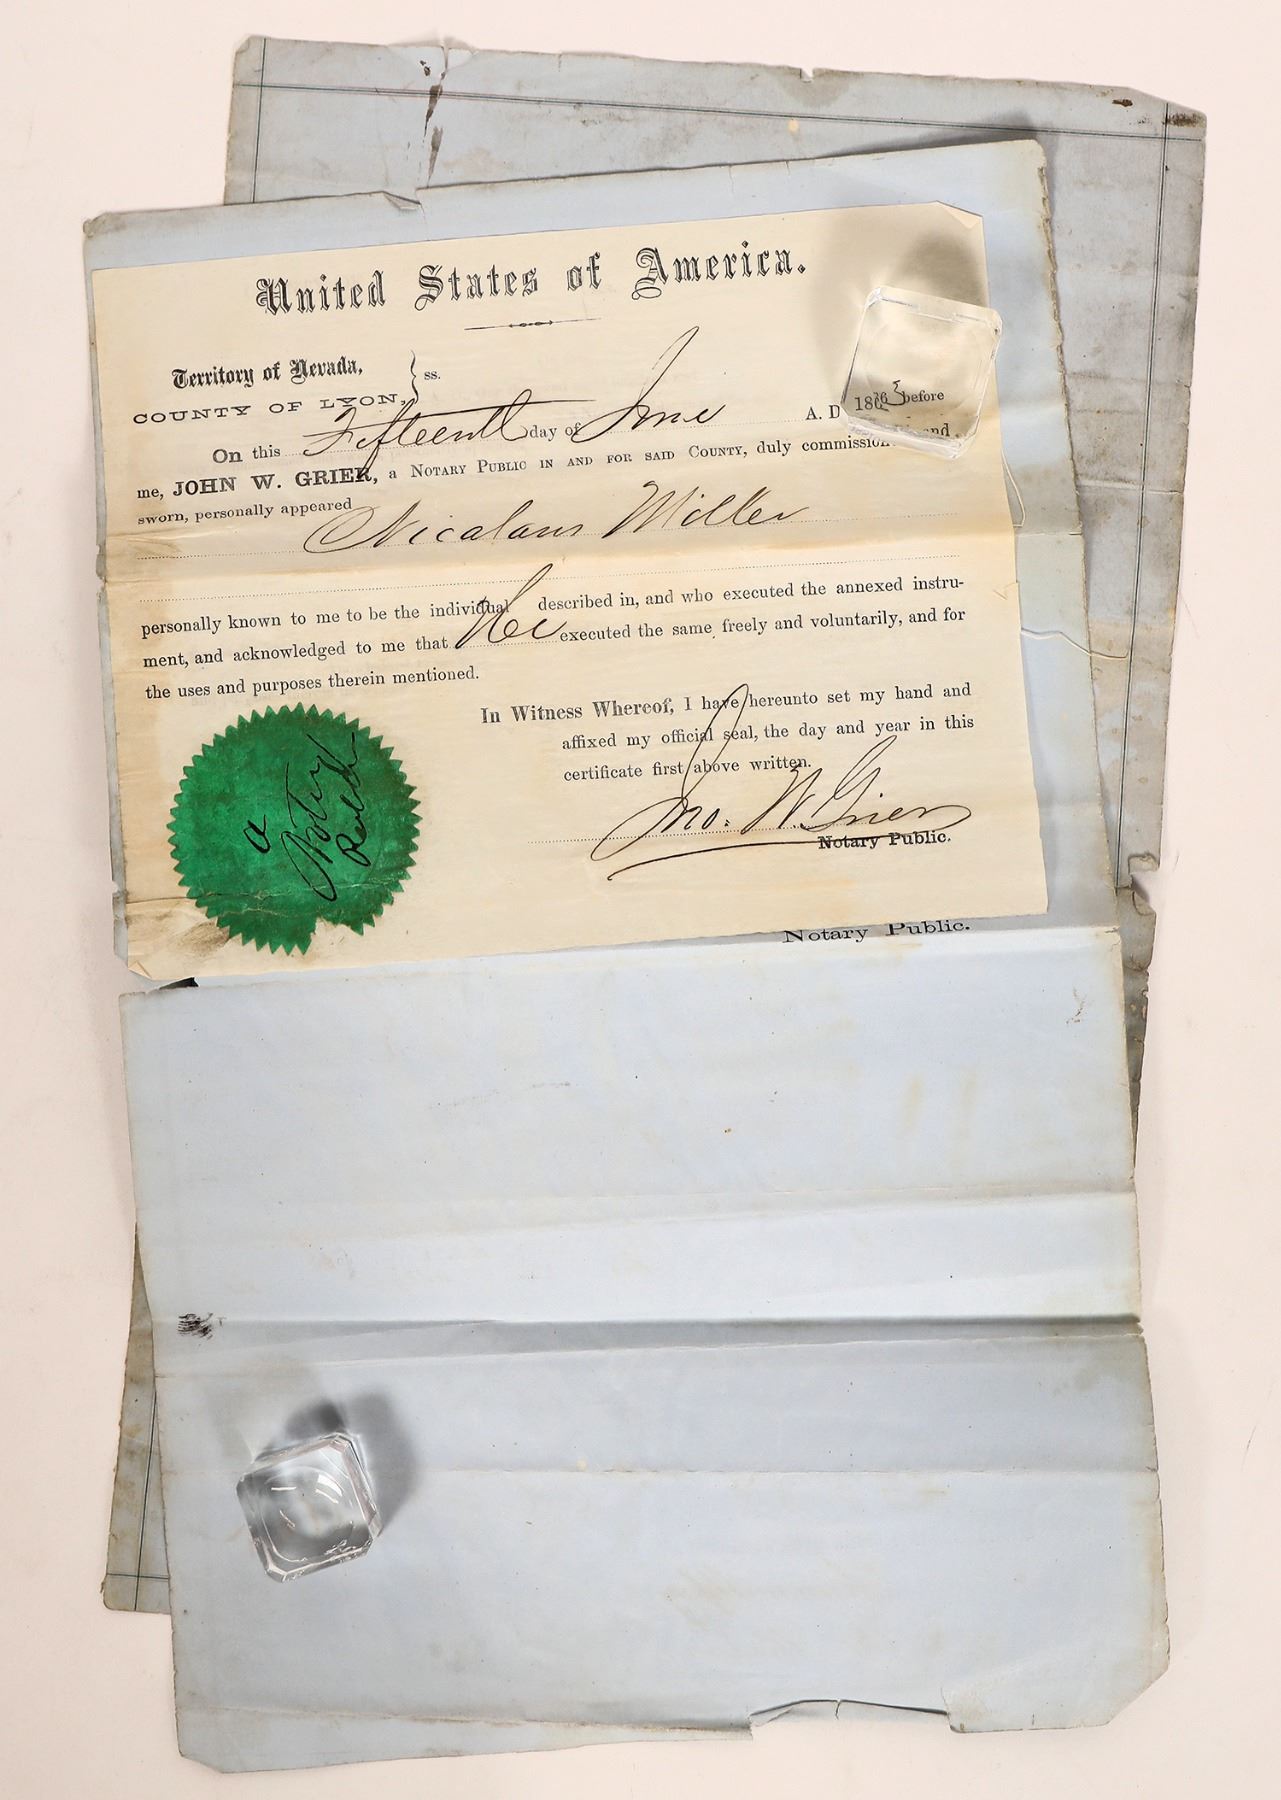 United States of America.
Territory of Nevada,
COUNTY OF LYON,
} ss.
On this Fifteenth day of June A. D 186 before
me, JOHN W. GRIER, a NOTARY PUBLIC IN AND FOR SAID COUNTY, duly and
sworn, personally appeared
Nicalaus Miller
personally known to me to be the individual described in, and who executed the annexed instru-
ment, and acknowledged to me that He executed the same freely and voluntarily, and for
the uses and purposes therein mentioned.
In Witness Whereof, I have hereunto set my hand and
affixed my official seal, the day and year in this
certificate first above written.
Jno. W. Grier
Notary Public.
a
Notary
Notary Public.